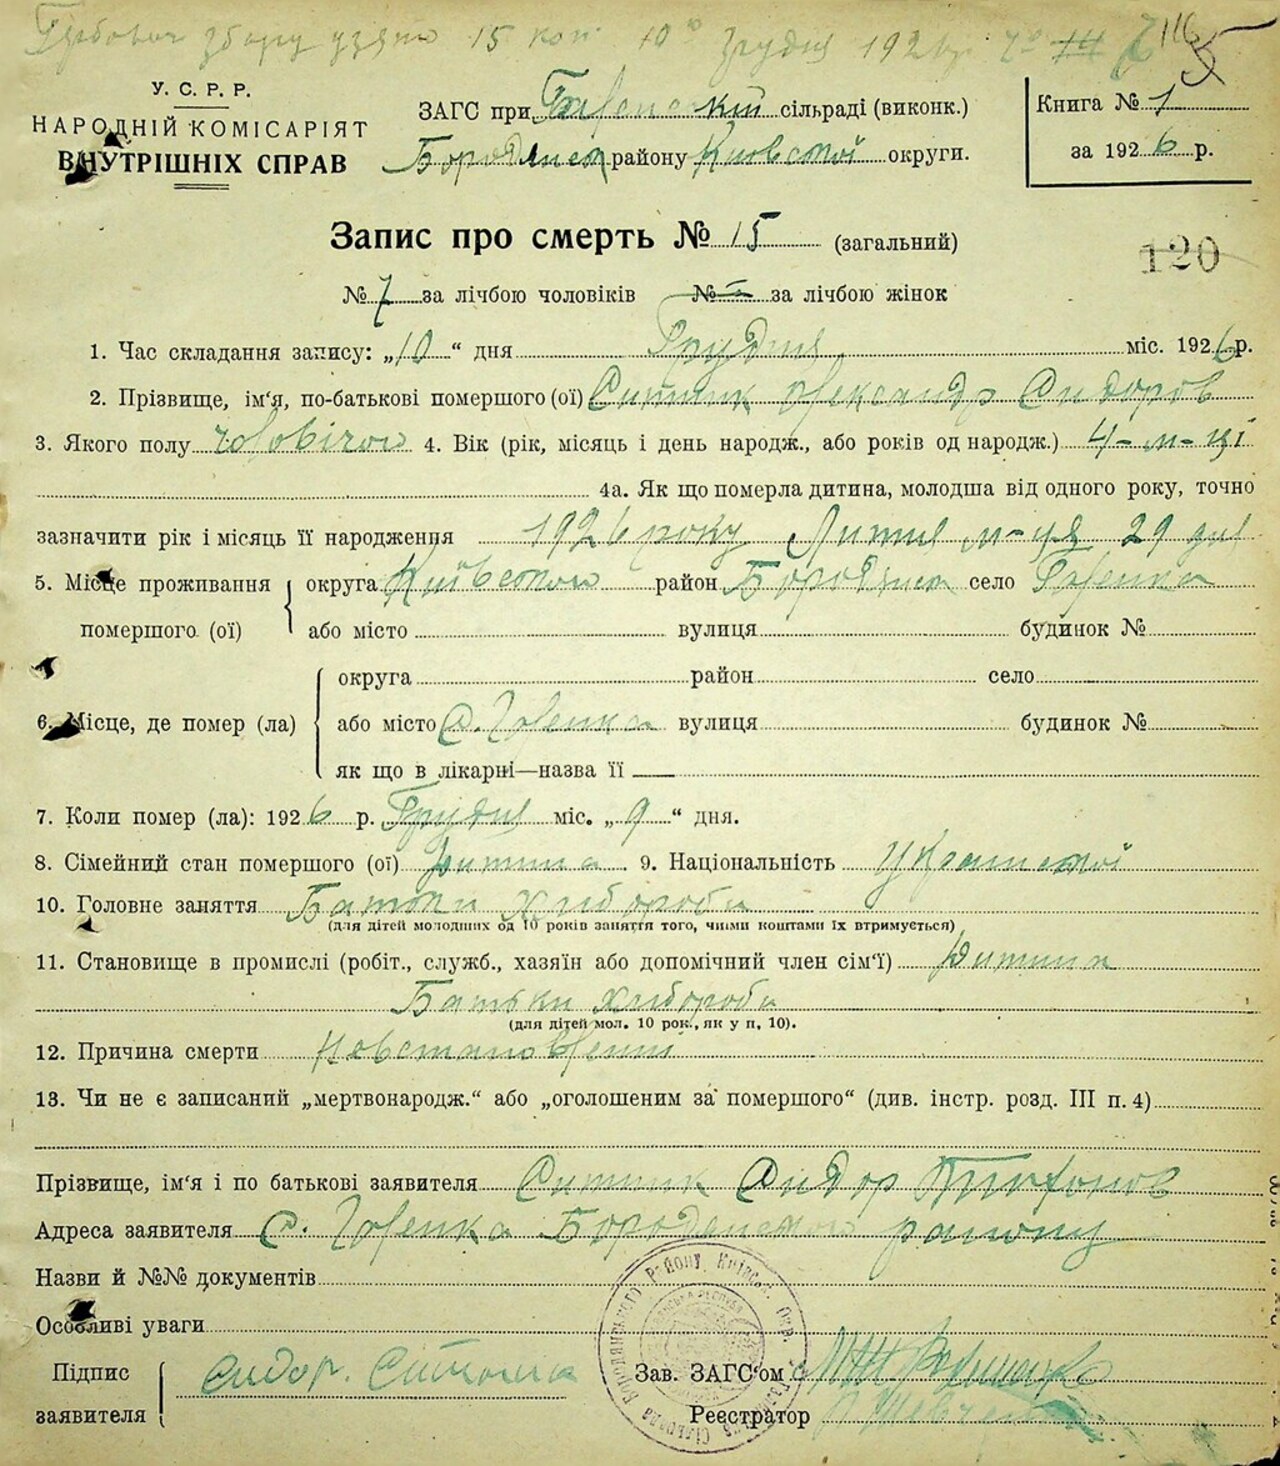 Гербового збору узято 15 коп. 10го грудня 1926 р.
116
У. С. Р. Р.
НАРОДНІЙ КОМІСАРІЯТ
ВНУТРІШНІХ СПРАВ
ЗАГС при Галенській сільраді (виконк.)
Бородянськ району Київської округи.
Книга № 1
за 1926 р.
Запис про смерть № 15 (загальний)
120
№ 7 за лічбою чоловіків № за лічбою жінок
1. Час складання запису: „10“ дня Грудня міс. 1926 р.
2. Прізвище, ім‘я, по-батькові помершого (ої) Ситник Олександр Сидоров
3. Якого полу чоловічого 4. Вік (рік, місяць і день народж., або років од народж.) 4-м-ці
4а. Як що померла дитина, молодша від одного року, точно
зазначити рік і місяць її народження 1926 року Липня м-ця 29 дня
5. Місце проживання помершого (ої) округа Київського район Бородянськ село Галенка
або місто вулиця будинок №
6. Місце, де помер (ла) округа район село
або місто с. Галенка вулиця будинок №
як що в лікарні—назва її
7. Коли помер (ла): 1926 р. Грудня міс. „9“ дня.
8. Сімейний стан помершого (ої) Дитина 9. Національність Української
10. Головне заняття Батьки Хлібороби
(для дітей молодших од 10 років заняття того, чиїми коштами їх втримується)
11. Становище в промислі (робіт., служб., хазяїн або допомічний член сім‘ї) Дитина
Батьки Хлібороби
(для дітей мол. 10 рок., як у п, 10).
12. Причина смерти Невстановленні
13. Чи не є записаний „мертвонародж.“ або „оголошеним за помершого“ (див. інстр. розд. III п. 4)
Прізвище, ім‘я і по батькові заявителя Ситник Сидор Тихонов
Адреса заявителя с. Галенка Бородянского району
Назви й №№ документів
Особливі уваги
Підпис заявителя Сидор. Ситника
Зав. ЗАГС‘ом
Реестратор Шевченко